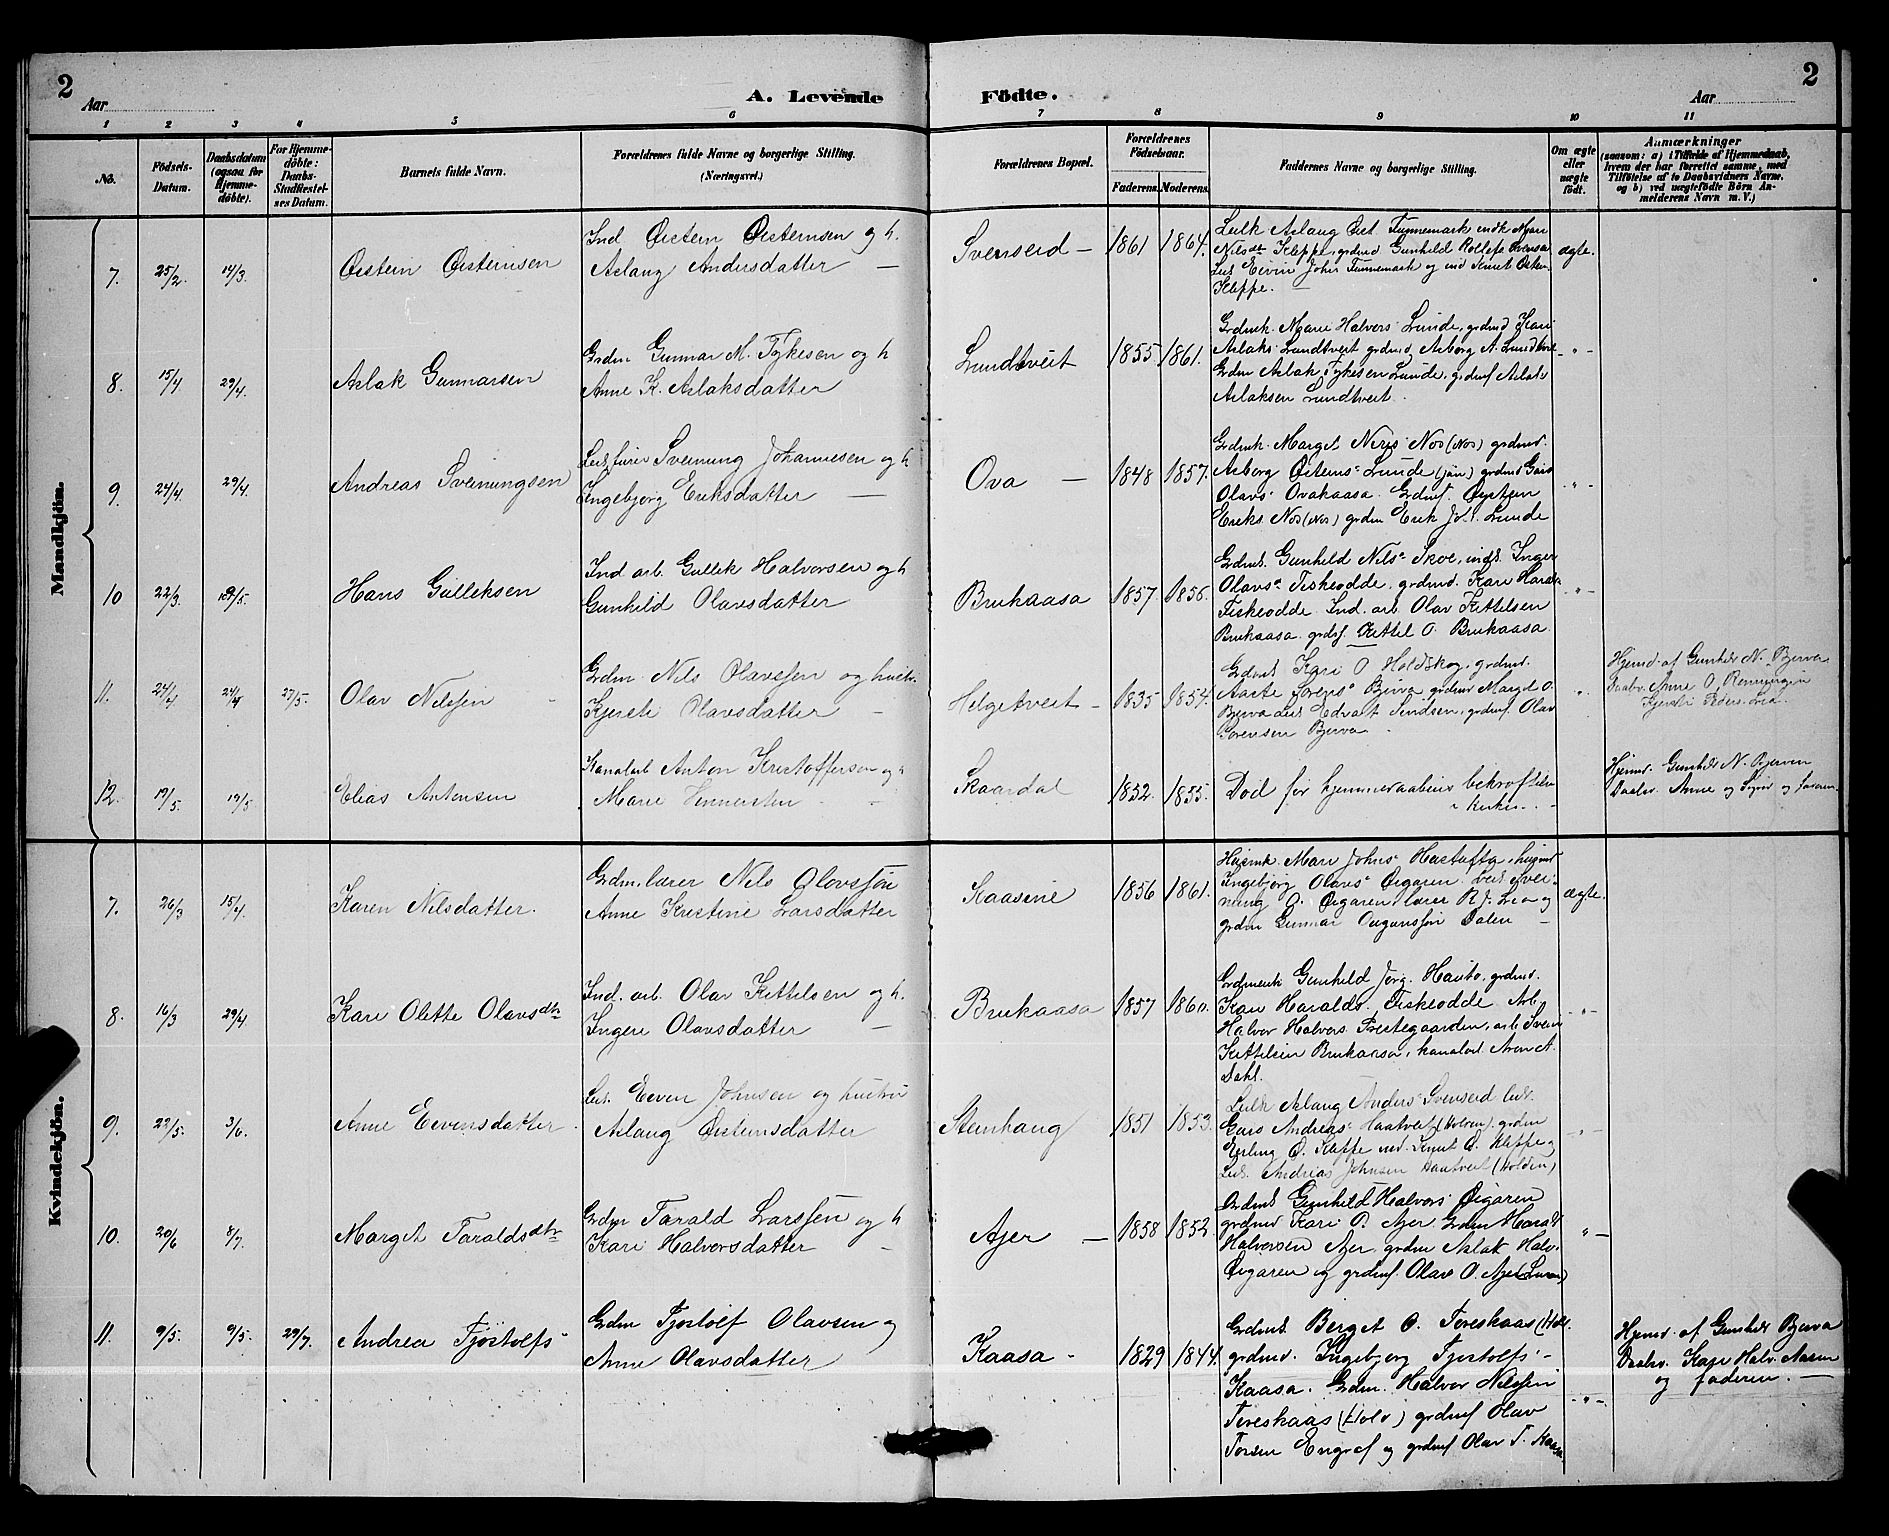 2
Aar
A. Levende Födte.
Aar
2
1 2 3 4 5 6 7 8 9 10 11
No.
Födsels-Datum.
Daabsdatum (ogsaa for Hjemme-döbte).
For Hjemme-döbte: Daabs-Stadfæstel-ses Datum.
Barnets fulde Navn.
Forældrenes fulde Navne og borgerlige Stilling. (Næringsvei.)
Forældrenes Bopæl.
Forældrenes Födselsaar.
Faderens. Moderens.
Faddernes Navne og borgerlige Stilling.
Om ægte eller uægte födt.
Anmærkninger
(saasom: a) i Tilfælde af Hjemmedaab,
hvem der har forrettet samme, med
Tilföielse af to Daabsvidners Navne,
og b) ved uægtefödte Börn An-
melderens Navn m. V.)
Mandkjön.
7. 25/2. 14/3. Øistein Øisteinsen
Ind Øistein Øisteinsen og h.
Aslaug Andersdatter —
Svenseid — 1861 1864.
Nils dt Kleppe, grdmd Gunhild
Kleppe. —
ægte.
8. 15/4 29/4. Aslak Gunnarsen
Grdm Gunnar M. Tykesen og h
Anne K. Aslaksdatter
Lundtveit 1855 1861.
Grdmk. Marie Halvors Lunde, grdmd Kari
Aslaks Lundtveit grdmd Asborg A. Lundtveit
Grdm Aslak Tykesen Lunde, grdmf Aslak
Aslaksen Lundtveit.
- " -
9. 24/4. 29/4. Andreas Sveinungsen
Sveinung Johannesen og h
Ingebjorg Eriksdatter —
Ova — 1848 1857.
Grdmk. Marget Nos (Nos) grdmd.
Asborg Øisteins Lunde grdmd
Olavs Ovakaasa. Grdmf. Øystein
Eriks. Nos (Nos) grdm Erik Lunde
- " -
10 22/3. Hans Gulleksen
Ind arb. Gullik Halvorsen og h
Gunhild Olavsdatter
Brukaasa 1857 1856.
Grdmk. Gunhild Nils Skoe, indk. Inger
Olavs Fiskeodde, grdmd. Kari Harald
Fiskeodde. Ind. arb Olav Kittelsen
Brukaasa grdf. Kittel O. Brukaasa
- " -
11. 24/4 24/4 27/5. Olav Nilssen
Grdm. Nils Olavssen og hustr.
Kjersti Olavsdatter —
Helgetveit — 1835 1854.
Grdmk Kari O Holdskog, grdmd.
Aaste Sorens Bjerva grdmd Marget O.
Bjerva grdmf. Olav
Sorensen Bjerva
Hjemd. af Gunhild N. Bjerva
Daabv. Anne O. Rønningen
12. 19/5. 19/5 Elias Antonsen
Kanalarb Anton Kristoffersen og
Marie
Skaardal 1852. 1855.
Død før hjemmedaabens
Hjemd. Gunhild N. Bjerven
Daabv. Anne og
Kvindekjön.
7. 26/3 15/4. Karen Nilsdatter.
Grdm. lærer Nils Olavssøn
Anne Kristine Larsdatter
Kaasene 1856 1861.
Mari Johns
Ingebjørg Olavs Øigaren.
nung O. Øigaren, lærer R. J. Lia og
grdm Gunnar Dalen —
ægte.
8. 16/3 29/4 Kari Olette Olavsdtr
Ind. arb. Olav Kittelsen og h.
Ingeri Olavsdatter —
Brukaasa 1857 1860.
Gunhild Jørg. Hauto, grdmd.
Kari Haralds. Fiskeodde Arb.
Halvor Halvors. Prestegaarden, arb. Svein
Kittelsen Brukaasa, kanalarb. Aron A.
Dahl.
- " -
9. 29/5. 3/6. Anne Eivensdatter.
Eeven Johnsen og hustru
Aslaug Øisteinsdatter
Stenhaug 1851 1853.
Aslaug Anders Svenseid
Andreas Haatveit (Holden). grdm
Erling Ø. Kleppe ind. Knut Ø. Kleppe og
Andreas Johnsen Haatveit (Holden)
- " -
10. 20/6 8/7. Marget Taraldsdtr
Grdm Tarald Larssen og h
Kari Halvorsdatter —
Ajer — 1858 1852.
Gunhild Halvors Øigaren
grdmd Kari O. Ajer. Grdm Harald
Halvorsen Ajer, grdm Aslak Halv.
Øigaren og grdmf. Olav O. Ajer
" —
11. 9/5. 9/5. 29/7. Andrea Tjøstolfs
Grdm Tjostolf Olavsen og
Anne Olavsdatter
Kaasa - 1829 1844.
Grdmk. Berget O. Tereskaas (Hold.
grdmd. Ingebjorg Tjostolfs -
Kaasa. Grdm. Halvor Nilssen
Tereskaas (Hold) grdmf Olav
Torsen Engraf og grdmf Olav T. Kaasa
- " -
Hjemd. af Gunhild Bjerva
Daabv. Kari Halv. Aasen
og faderen. —